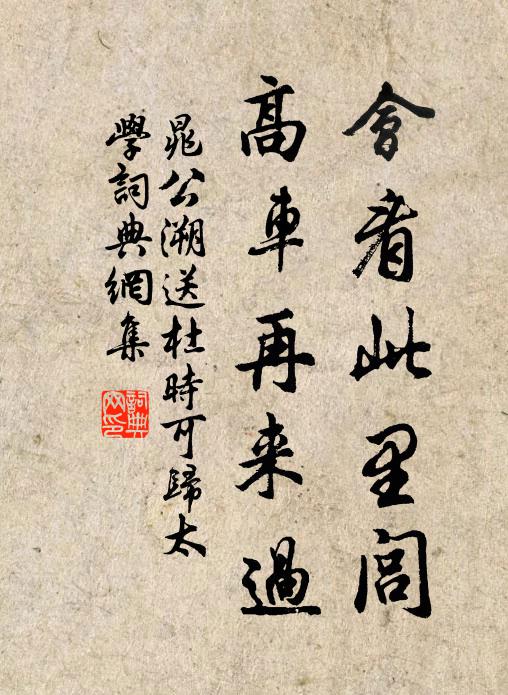 會看此里閭
高車再来過
晁公溯送杜時可歸太
學詞典網集
詞典
网印